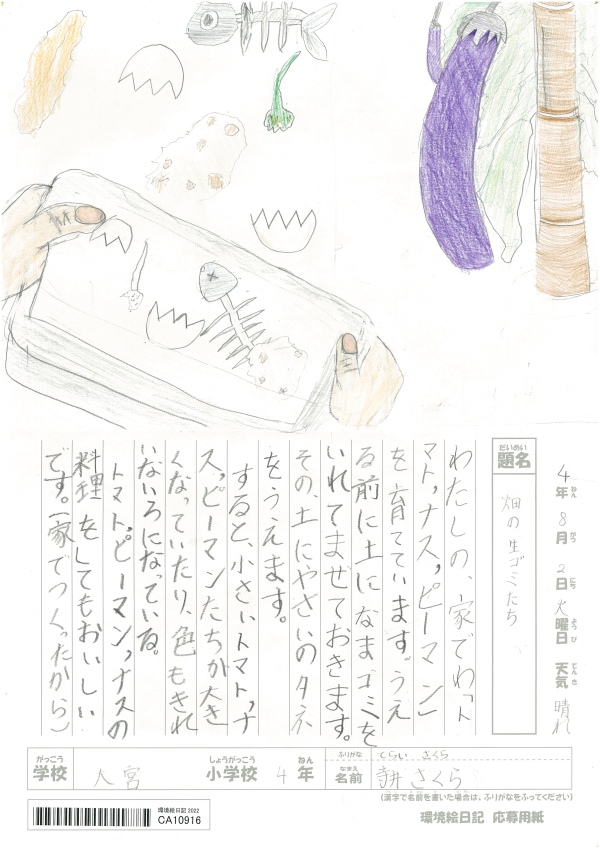 4年 8月 2日 火曜日 天気 晴れ
ねん がつ にち ようび てんき
だいめい
題名
畑の生ゴミたち
わたしの、家でわ「ト
マト,ナス,ピーマン」
を育てています。うえ
る前に土になまゴミを
いれてまぜておきます。
その、土にやさいのタネ
をうえます。
すると、小さいトマト,ナ
ス,ピーマンたちが大き
くなっていたり、色もきれ
いないろになっている。
トマト,ピーマン,ナスの
料理をしてもおいしい
です。(家でつくったから)
がっこう しょうがっこう ねん ふりがな てらい さくら
学校 大宮 小学校 4年 なまえ 名前 寺井 さくら
(漢字で名前を書いた場合は、ふりがなをふってください)
環境絵日記 2022
CA10916
環境絵日記 応募用紙